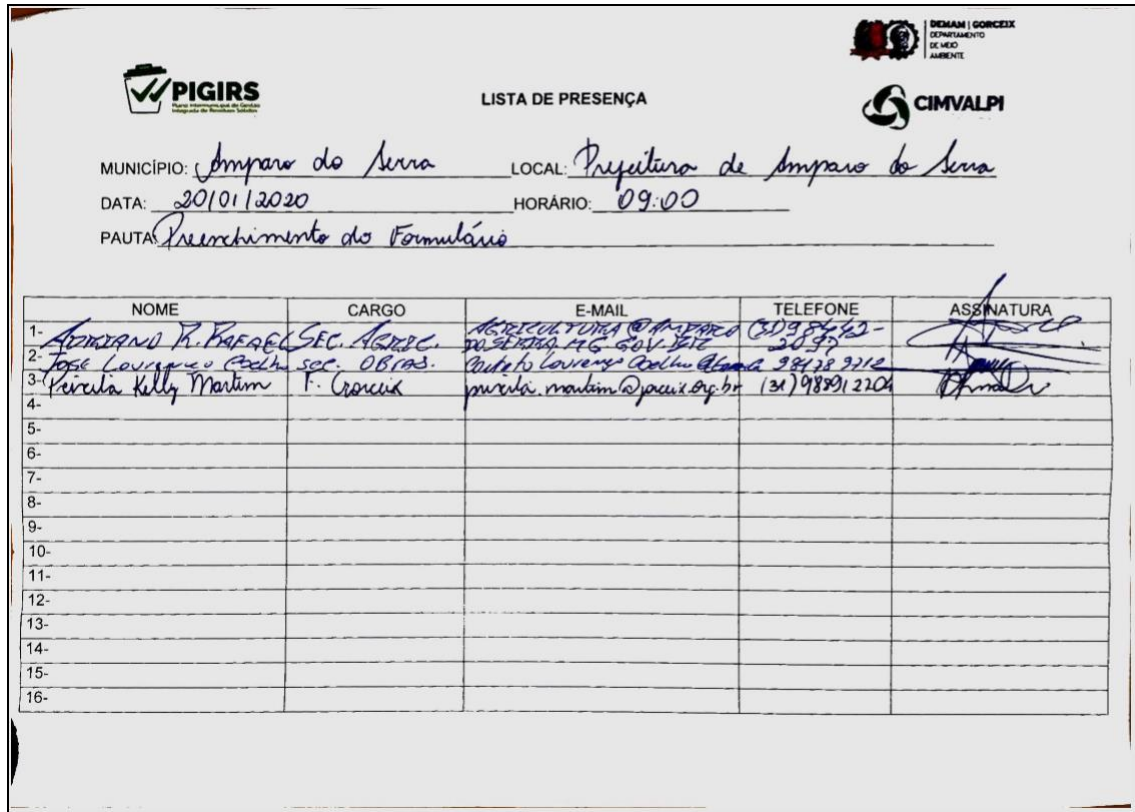 DEMAM | GORCEIX
DEPARTAMENTO
DE MEIO
AMBIENTE
PIGIRS
Plano Intermunicipal de Gestão
Integrada de Resíduos Sólidos
LISTA DE PRESENÇA
CIMVALPI
MUNICÍPIO: Amparo do Serra LOCAL: Prefeitura de Amparo do Serra
DATA: 20/01/2020 HORÁRIO: 09:00
PAUTA: Preenchimento do Formulário
NOME CARGO E-MAIL TELEFONE ASSINATURA
1- ADRIANO R. RAFAEL SEC. AGRIC. AGRICULTURA@AMPARO
DOSERRA.MG.GOV.BR
2- José Lourenço Coelho sec. OBRAS. Lourenço Coelho
3- Priscila Kelly Martim F. Gorceix priscila.martim@gorceix.org.br (31) 988912204
4-
5-
6-
7-
8-
9-
10-
11-
12-
13-
14-
15-
16-